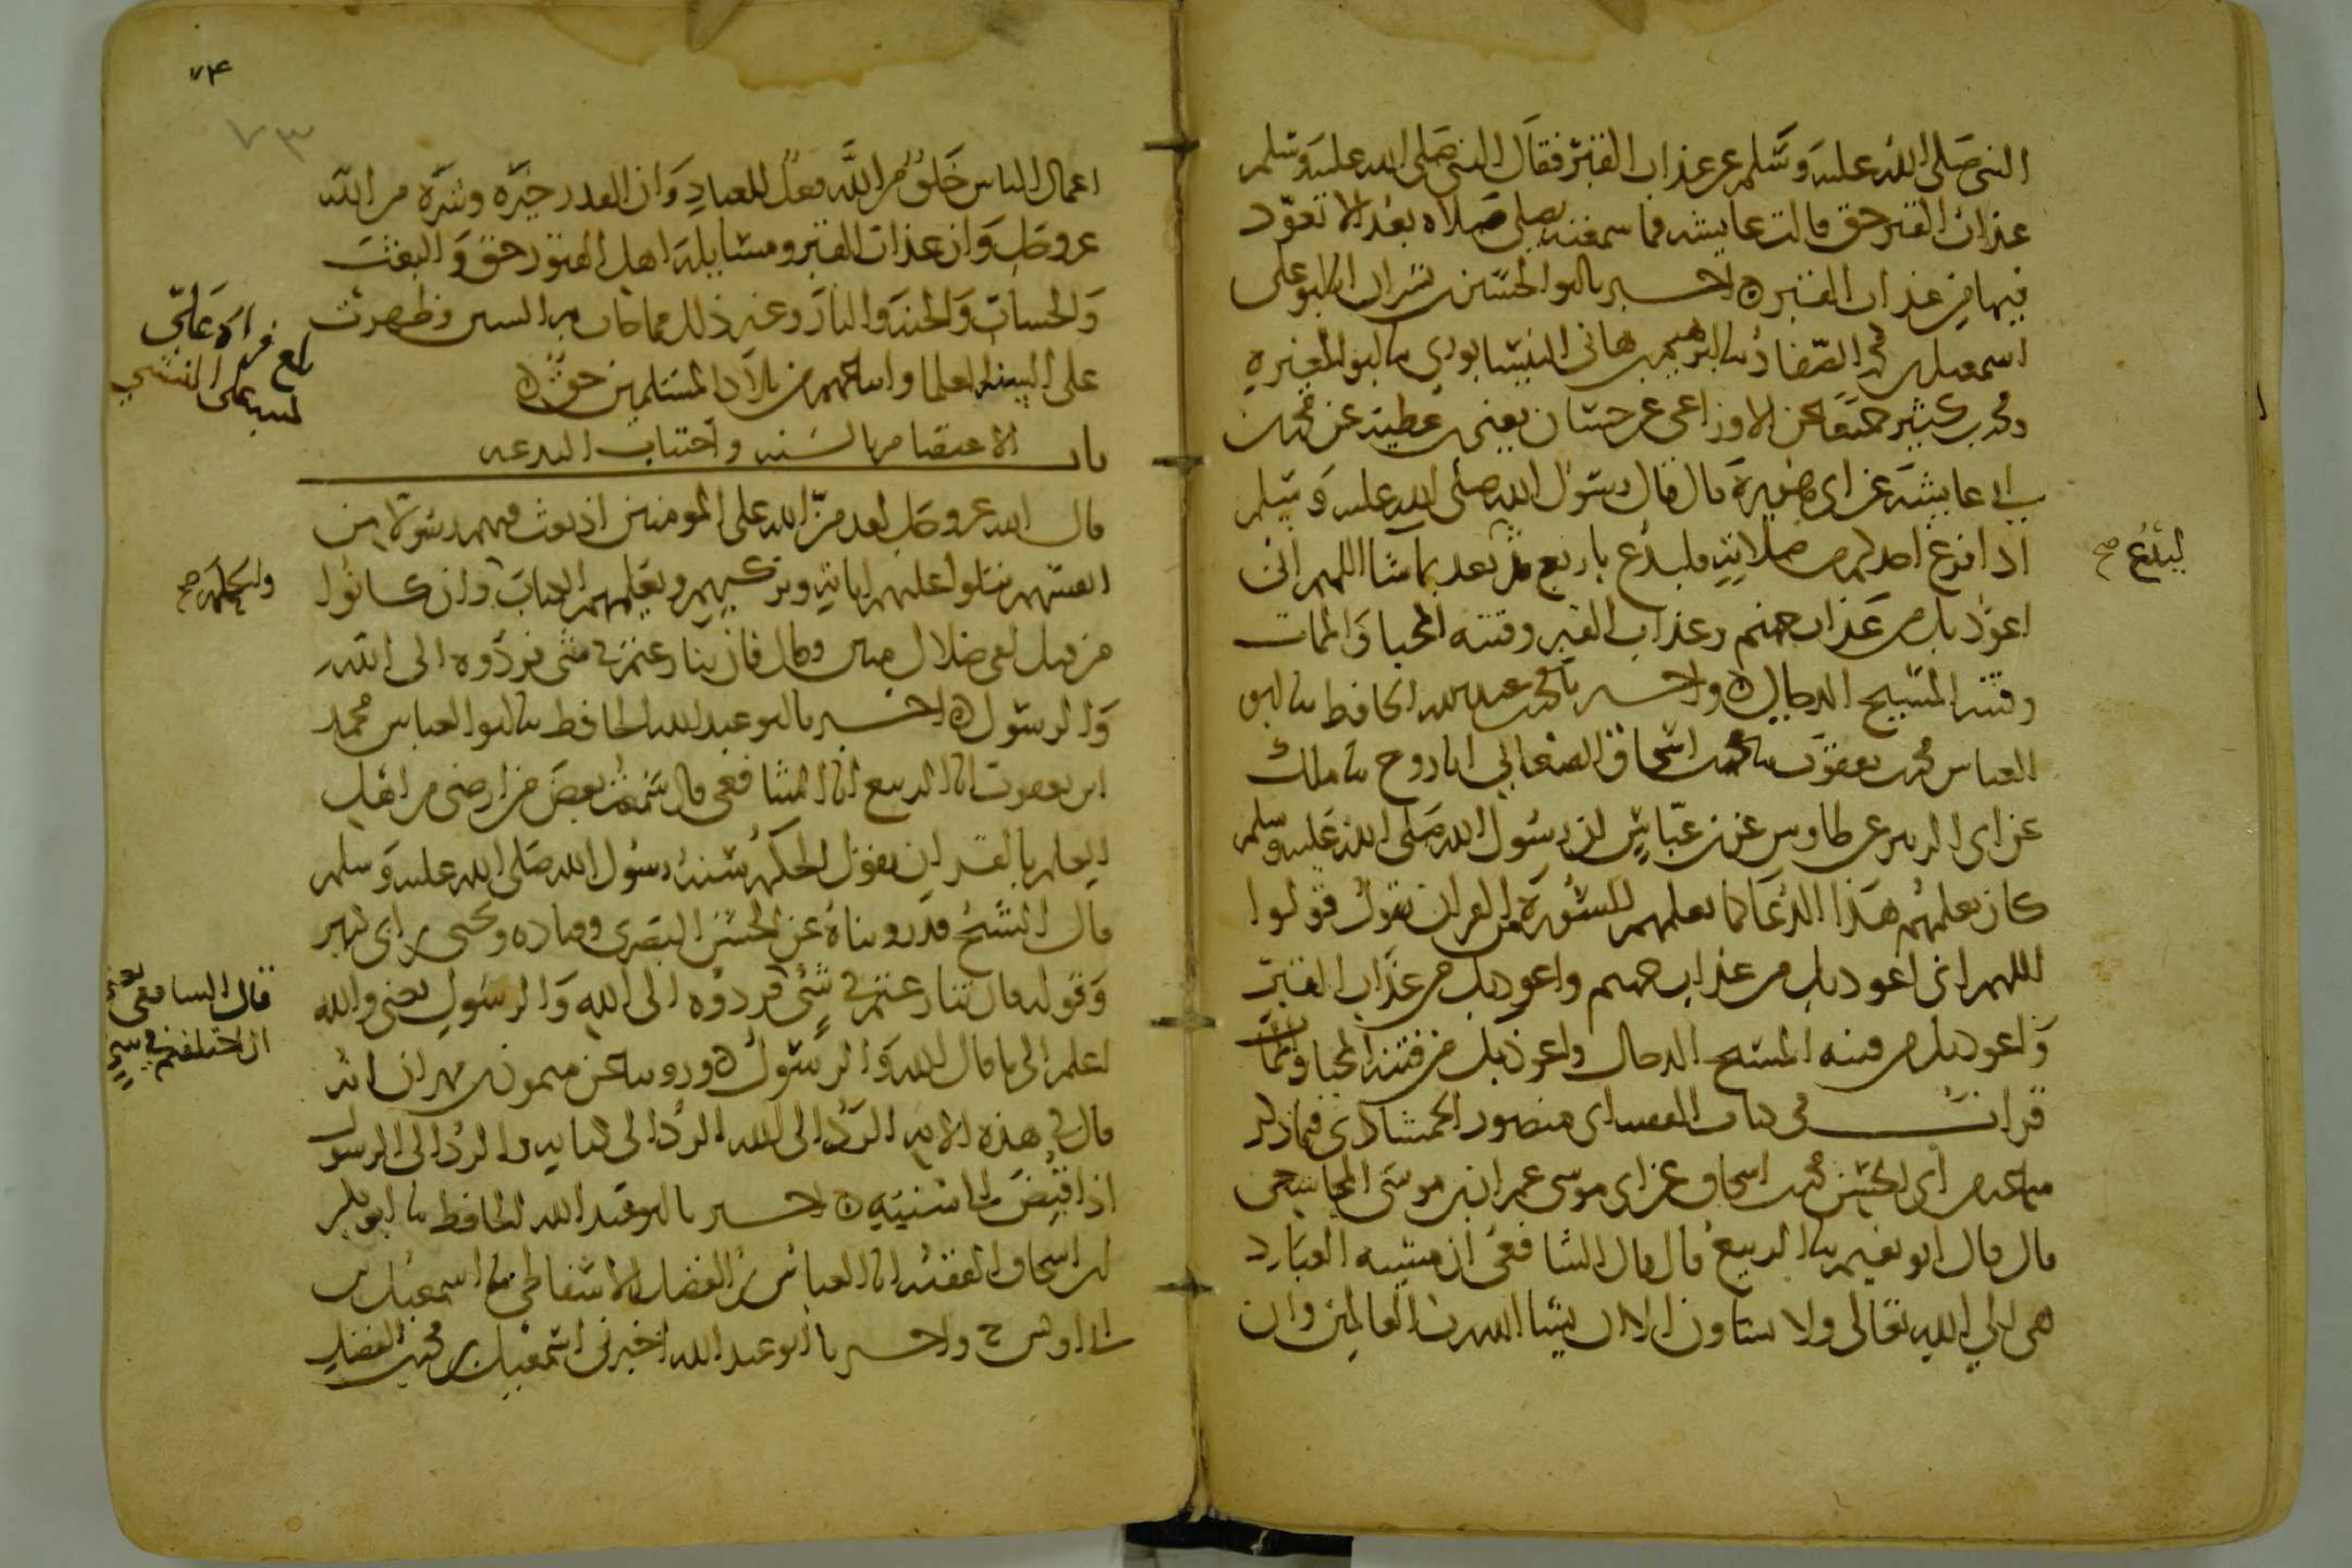 النبي صلى الله عليه وسلم عن عذاب القبر فقال النبي صلى الله عليه وسلم
عذاب القبر حق قالت عايشه فما سمعته يصلي صلاه بعد الا تعوذ
فيها من عذاب القبر ه اخبرنا ابو الحسين بن بشران انا ابو علي
اسمعيل بن محمد الصفار نا ابرهيم بن هاني النيسابوري نا ابو المغيرة
ومحمد بن كثير جميعا عن الاوزاعي عن حسان يعني بن عطية عن محمد بن
ابي عايشة عن ابي هريرة قال قال رسول الله صلى الله عليه وسلم
اذا فرغ احدكم من صلاته فليدع باربع ثم يدعو بعد بما شا اللهم اني
ليدع صح
اعوذ بك من عذاب جهنم وعذاب القبر وفتنه المحيا والممات
وفتنة المسيح الدجال ه واخبرنا محمد بن عبد الله الحافظ نا ابو
العباس محمد بن يعقوب نا محمد بن اسحاق الصغاني انا روح نا مالك
عن ابي الزبير عن طاوس عن بن عباس ان رسول الله صلى الله عليه وسلم
كان يعلمهم هذا الدعا كما يعلمهم السورة من القران يقول قولوا
اللهم اني اعوذ بك من عذاب جهنم واعوذ بك من عذاب القبر
واعوذ بك من فتنه المسيح الدجال واعوذ بك من فتنة المحيا والممات
قرات في كتاب الفقيه ابي منصور الحمشاذي فيما ذكر
سماعه من ابي الحسن محمد بن اسحاق عن ابي موسى عمران بن موسى المجاشعي
قال قال ابو نعيم نا الربيع قال قال الشافعي ان مشيه العباد
هي الي الله تعالى ولا يشاون الا ان يشا الله رب العالمين وان
٧٤
٧٣
اعمال الناس خلق من الله فعل للعباد وان القدر خيره وشره من الله
عز وجل وان عذاب القبر ومسايلة اهل القبور حق والبعث
والحساب والجنة والنار وغير ذلك مما جات به السنن وظهرت
على السنة العلما واتباعهم من بلاد المسلمين حق ه
بلغ قراة علي
باب الاعتصام بالسنه واجتناب البدعه
قال الله عز وجل لقد من الله على المومنين اذ بعث فيهم رسولا من
انفسهم يتلوا عليهم اياته ويزكيهم ويعلمهم الكتاب وان كانوا
والحكمة صح
من قبل لفي ضلال مبين وقال فان تنازعتم في شي فردوه الى الله
والرسول ه اخبرنا ابو عبد الله الحافظ نا ابو العباس محمد
ابن يعقوب انا الربيع انا الشافعي قال سمعت بعض من ارضى من اهل
العلم بالقران يقول الحكمة سنة رسول الله صلى الله عليه وسلم
قال الشيخ قد رويناه عن الحسن البصري وقتاده ويحيى بن ابي كثير
وقوله فان تنازعتم في شي فردوه الى الله والرسول يعني والله
قال الشافعي يعني
ان اختلفتم في شي
اعلم الى ما قال الله والرسول ه وروينا عن ميمون بن مهران انه
قال في هذه الاية الرد الى الله الرد الى كتابه والرد الى الرسول
اذا قبض الى سنته ه اخبرنا ابو عبد الله الحافظ نا ابو بكر
ابن اسحاق الفقيه انا العباس بن الفضل الاسفاطي نا اسمعيل بن
ابي اويس ح واخبرنا ابو عبد الله اخبرني اسمعيل بن محمد بن الفضل